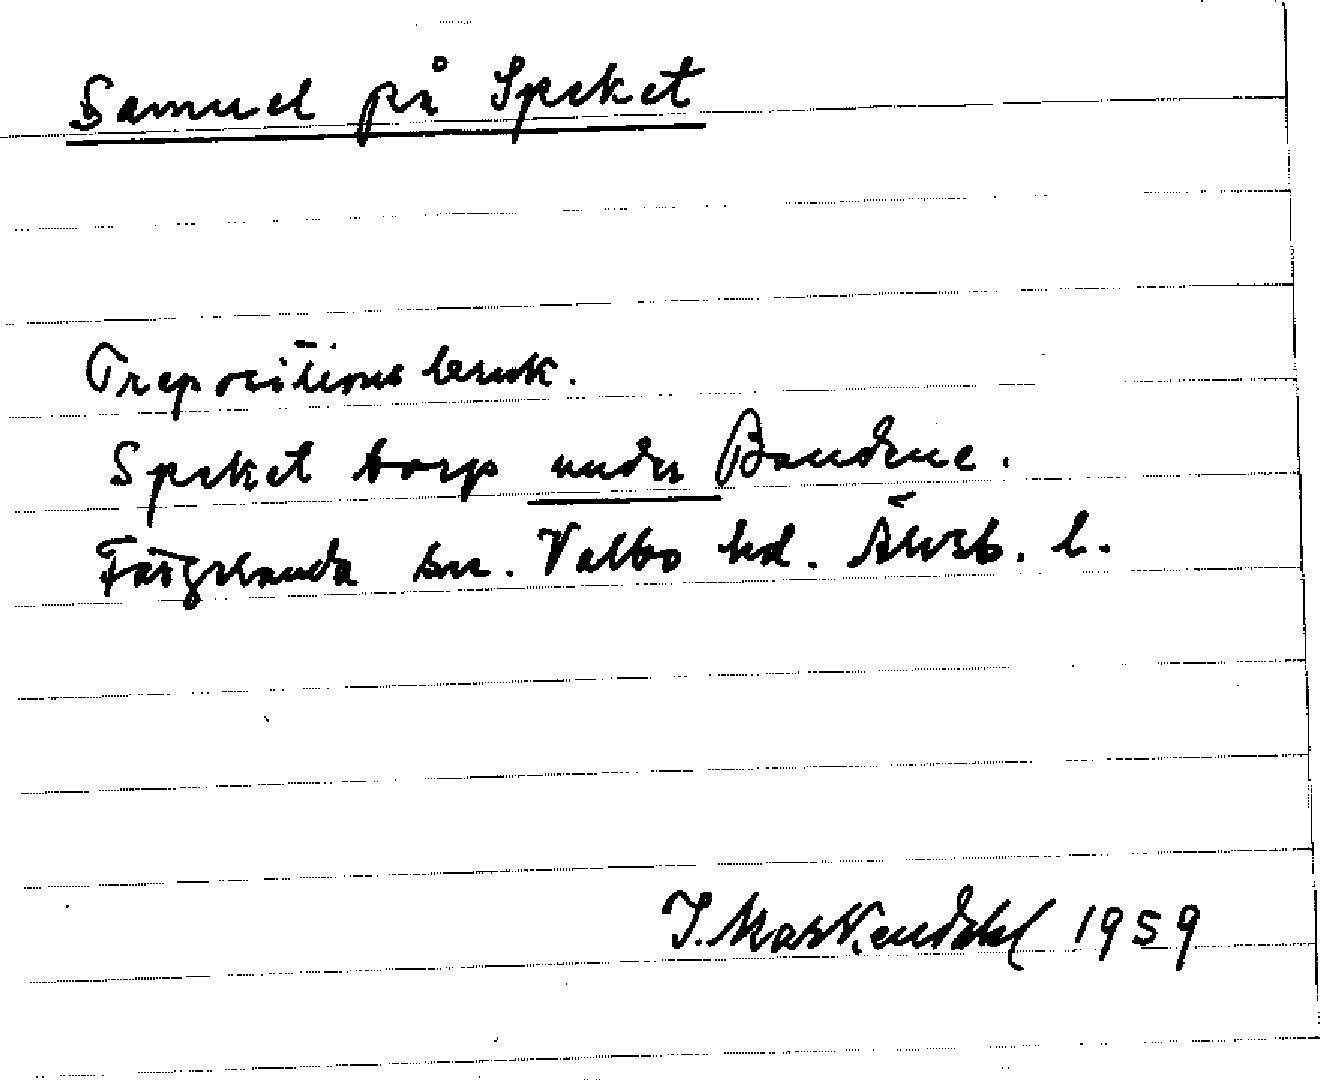 Samuel på Speket
Prepositionsbruk.
Speket torp under Bandene.
Färgelanda sn. Valbo hd. Älvsb. l.
J. Markendahl 1959